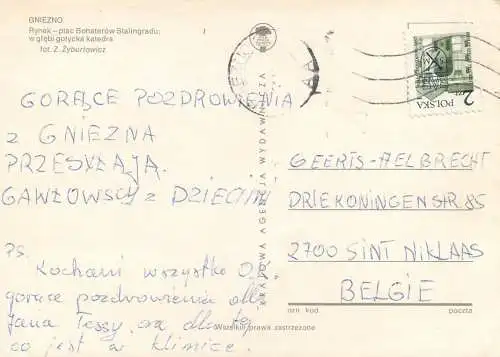 GNIEZNO
Rynek – plac Bohaterów Stalingradu;
w głębi gotycka katedra
fot. Z. Żyburtowicz
GORĄCE POZDROWIENIA
z GNIEZNA
PRZESYŁAJĄ
GAWŻOWSCY z DZIEĆMI
PS.
Kochani wszystko O.
gorące pozdrowienia dla
Jana Tessy, oraz dla tej
co jest w klinice.
KRAJOWA AGENCJA WYDAWNICZA
Wszelkie prawa zastrzeżone
POLSKA
2 ZŁ
GEERTS-AELBRECHT
DRIEKONINGENSTR 85
2700 SINT NIKLAAS
BELGIE
nrm kod
poczta